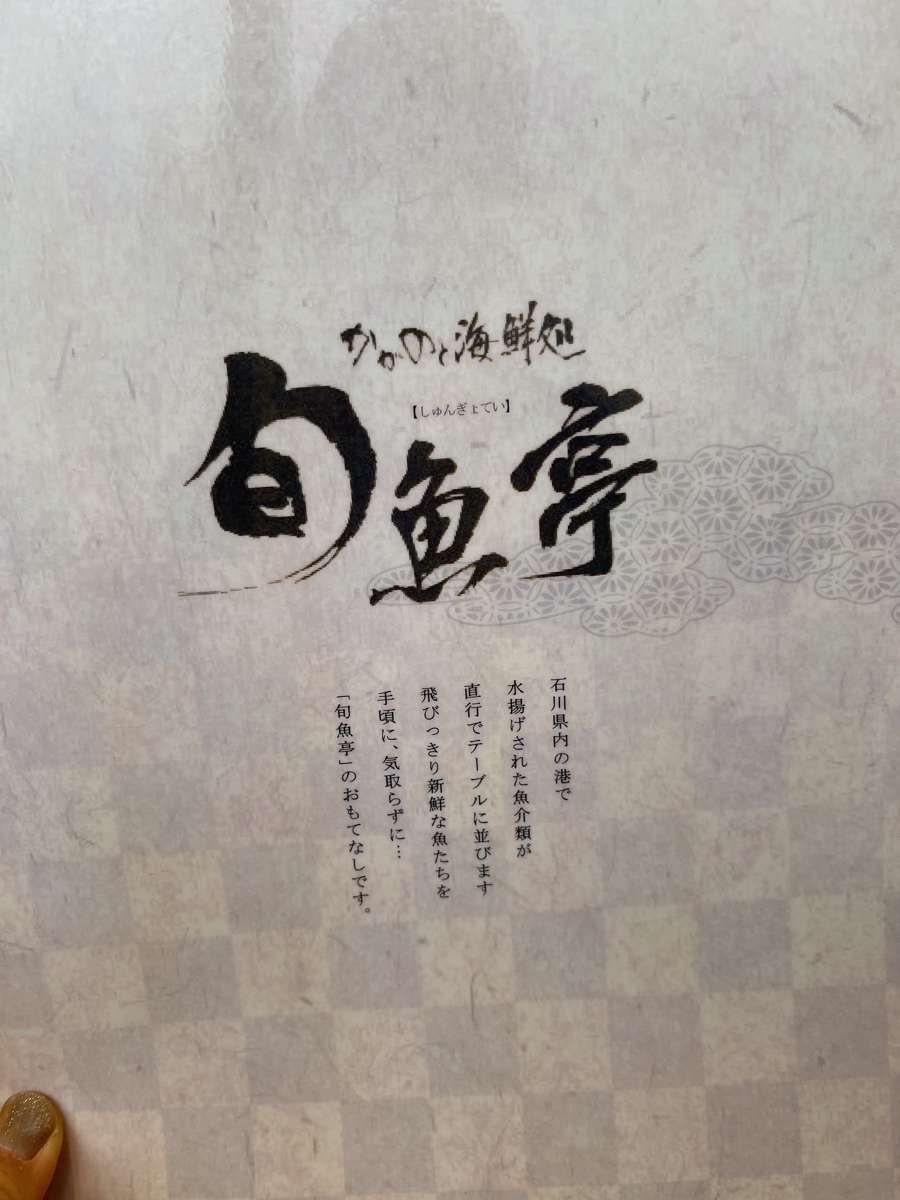 かがのと海鮮処
旬魚亭
【しゅんぎょてい】
石川県内の港で
水揚げされた魚介類が
直行でテーブルに並びます
飛びっきり新鮮な魚たちを
手頃に、気取らずに…
「旬魚亭」のおもてなしです。